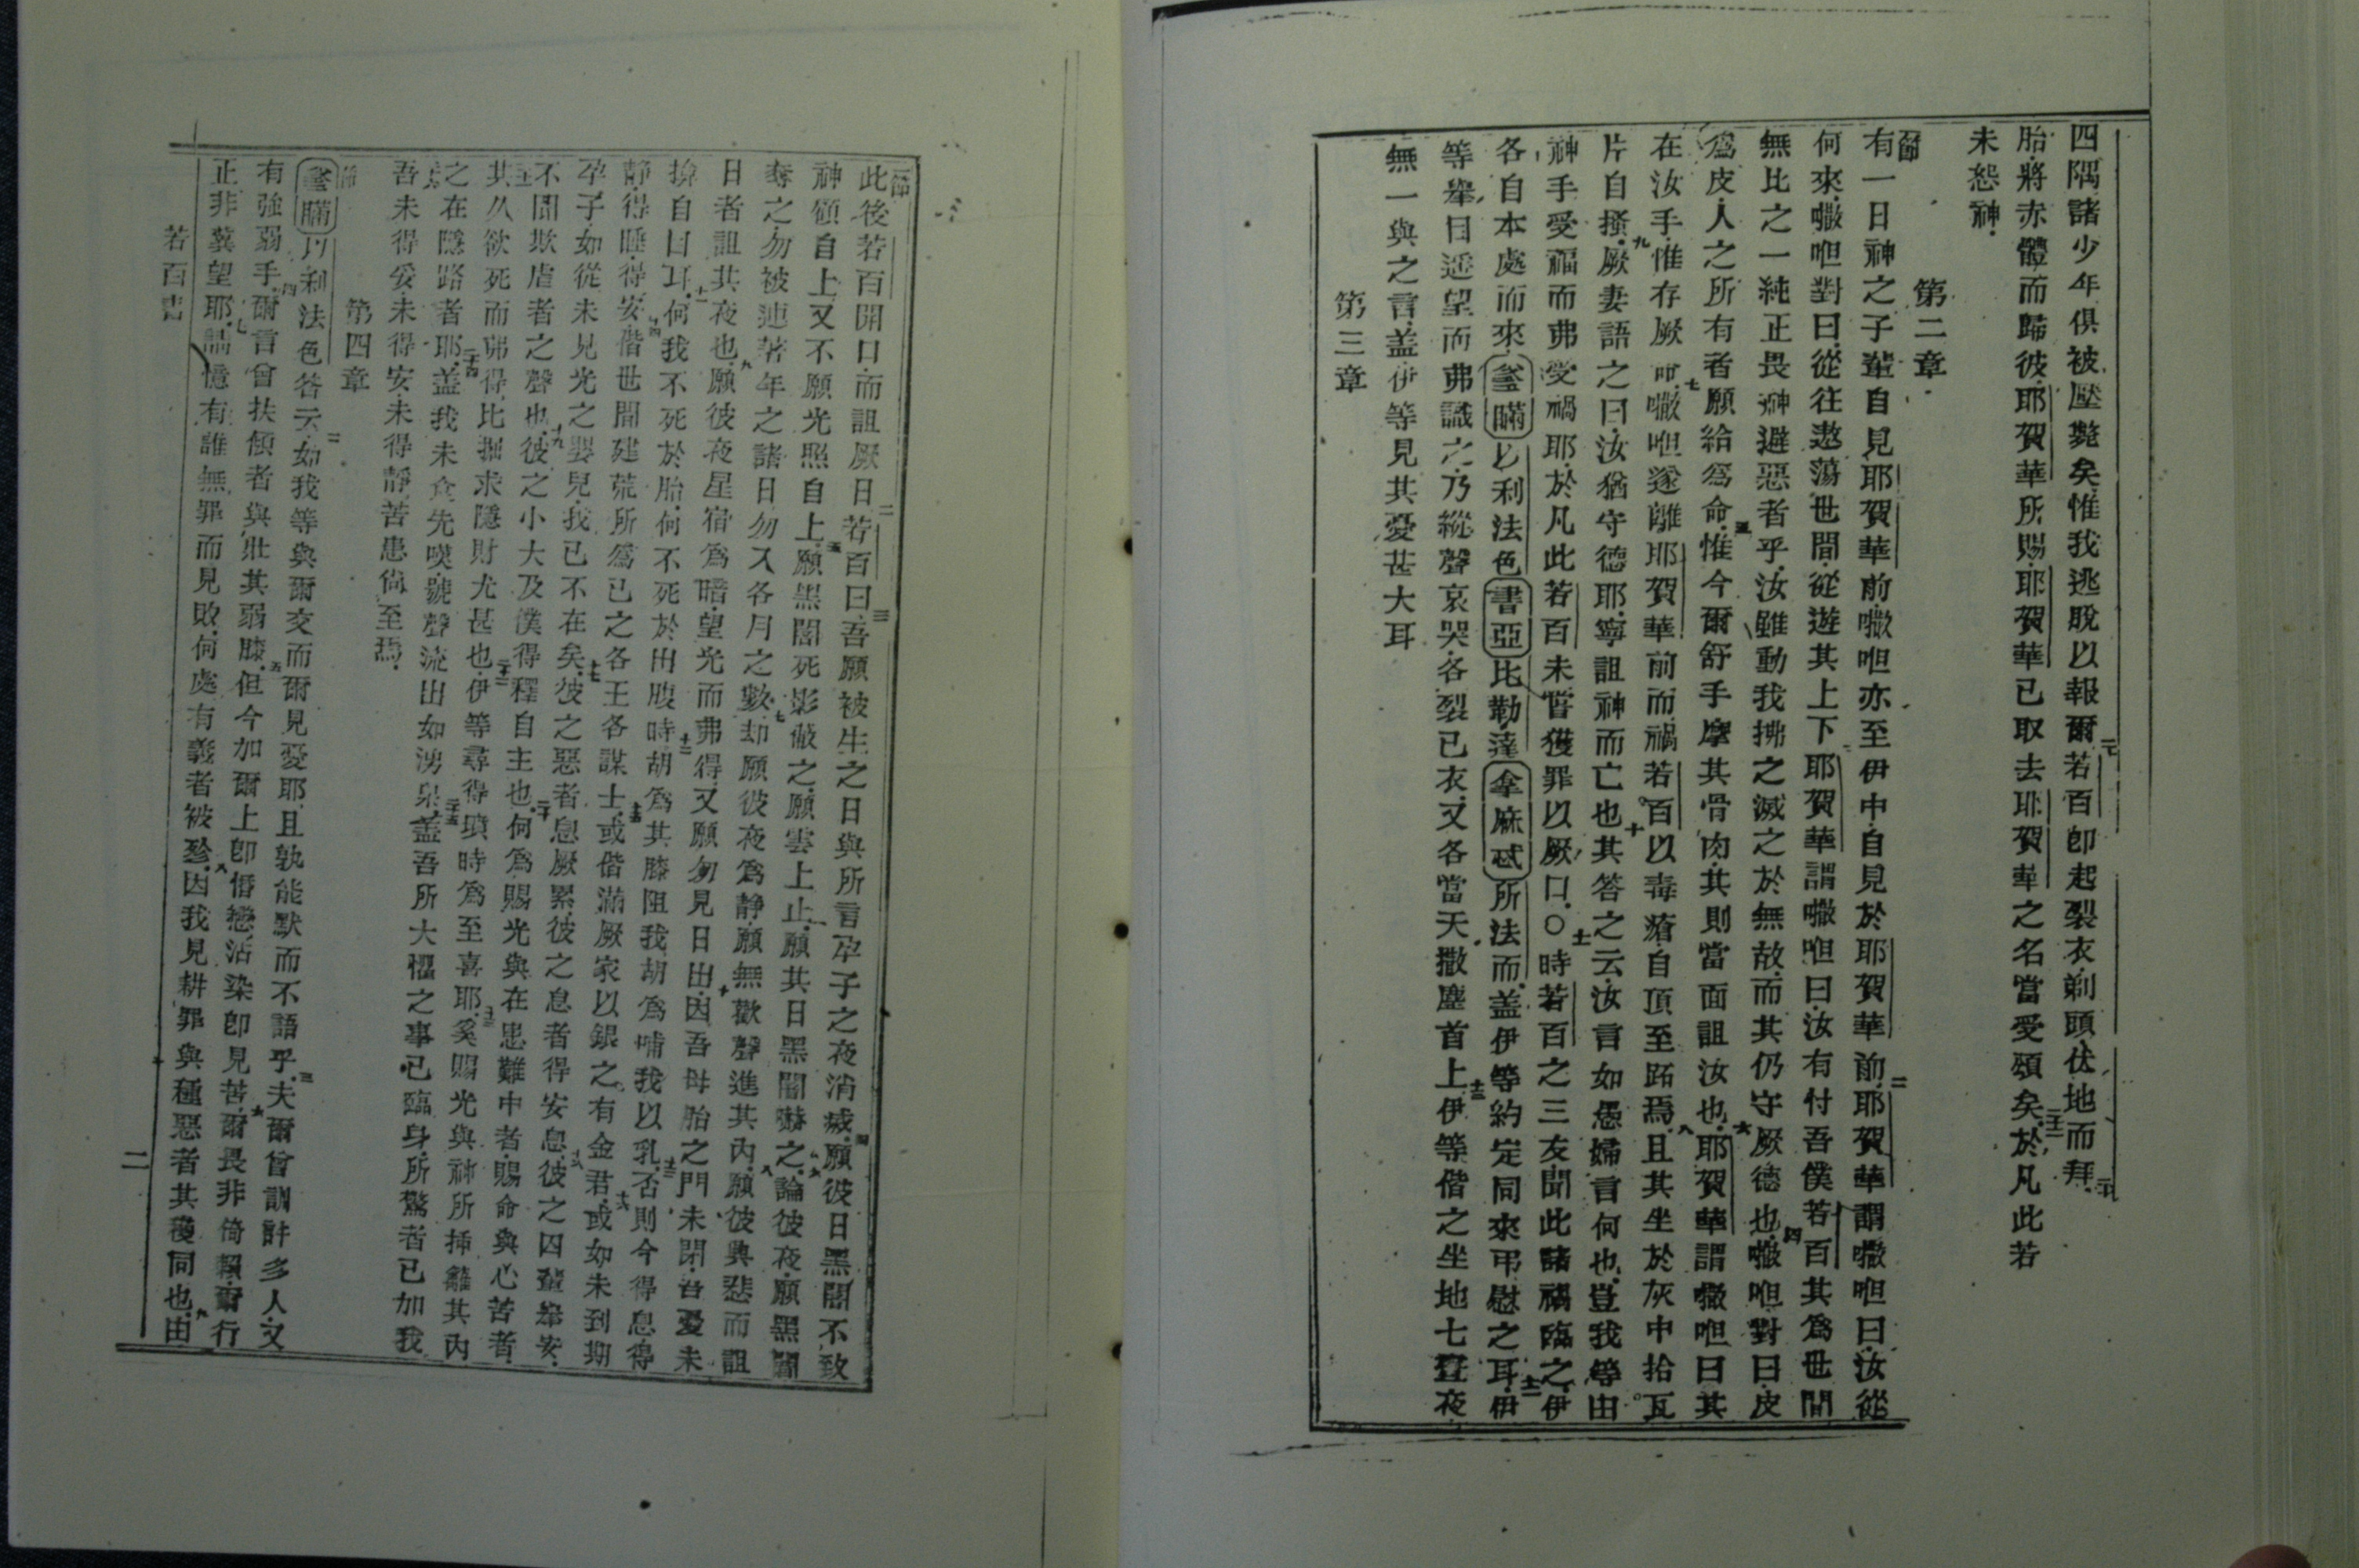 四隅諸少年俱被壓斃矣惟我逃脫以報爾若百卽起裂衣剃頭伏地而拜
胎將赤體而歸彼耶賀華所賜耶賀華已取去耶賀華之名當受頌矣於凡此若
未怨神
第二章
有一日神之子輩自見耶賀華前嘞呾亦至伊中自見於耶賀華前耶賀華謂嘞呾曰汝從
何來嘞呾對曰從往遨蕩世間從遊其上下耶賀華謂嘞呾曰汝有付吾僕若百其爲世間
無比之一純正畏神避惡者乎汝雖動我拂之滅之於無故而其仍守厥德也嘞呾對曰皮
爲皮人之所有者願給爲命惟今爾舒手摩其骨肉其則當面詛汝也耶賀華謂嘞呾曰其
在汝手惟存厥命嘞呾遂離耶賀華前而禍若百以毒瘡自頂至跖焉且其坐於灰中拾瓦
片自搔厥妻語之曰汝猶守德耶寧詛神而亡也其答之云汝言如愚婦言何也豈我等由
神手受福而弗受禍耶於凡此若百未嘗獲罪以厥口〇時若百之三友聞此諸禍臨之伊
各自本處而來以利法色書亞比勒達拿麻忒所法而蓋伊等約定同來弔慰之耳伊
等舉目遙望而弗識之乃縱聲哀哭各裂已衣又各當天撒塵首上伊等偕之坐地七晝夜
無一與之言蓋伊等見其憂甚大耳
第三章
此後若百開口而詛厥日若百曰吾願被生之日與所言孕子之夜消滅願彼日黑闇不致
神顧自上又不願光照自上願黑闇死影蔽之願雲上止願其日黑闇嚇之論彼夜願黑闇
奪之勿被連著年之諸日勿入各月之數却願彼夜爲靜願無歡聲進其內願彼興悲而詛
日者詛其夜也願彼夜星宿爲暗望光而弗得又願勿見日出因吾母胎之門未閉吾憂未
掩自目耳何我不死於胎何不死於出腹時胡爲其膝阻我胡爲哺我以乳否則今得息得
靜得睡得安偕世間建荒所爲已之各王各謀士或偕滿厥家以銀之有金君或如未到期
孕子如從未見光之嬰兒我已不在矣彼之惡者息厥累彼之息者得安息彼之囚輩舉安
不聞欺虐者之聲也彼之小大及僕得釋自主也何爲賜光與在患難中者賜命與心苦者
其久欲死而弗得比掘求隱財尤甚也伊等尋得墳時爲至喜耶奚賜光與神所揷籬其內
之在隱路者耶蓋我未食先嘆號聲流出如湧泉蓋吾所大懼之事已臨身所驚者已加我
吾未得妥未得安未得靜苦患尙至焉
第四章
以利法色答云如我等與爾交而爾見憂耶且孰能默而不語乎夫爾曾訓許多人又
有強弱手爾言曾扶傾者與壯其弱膝但今加爾上卽惛戀沾染卽見苦爾畏非倚賴爾行
正非冀望耶請憶有誰無罪而見敗何處有義者被殄因我見耕罪與種惡者其穫同也由
若百書
二